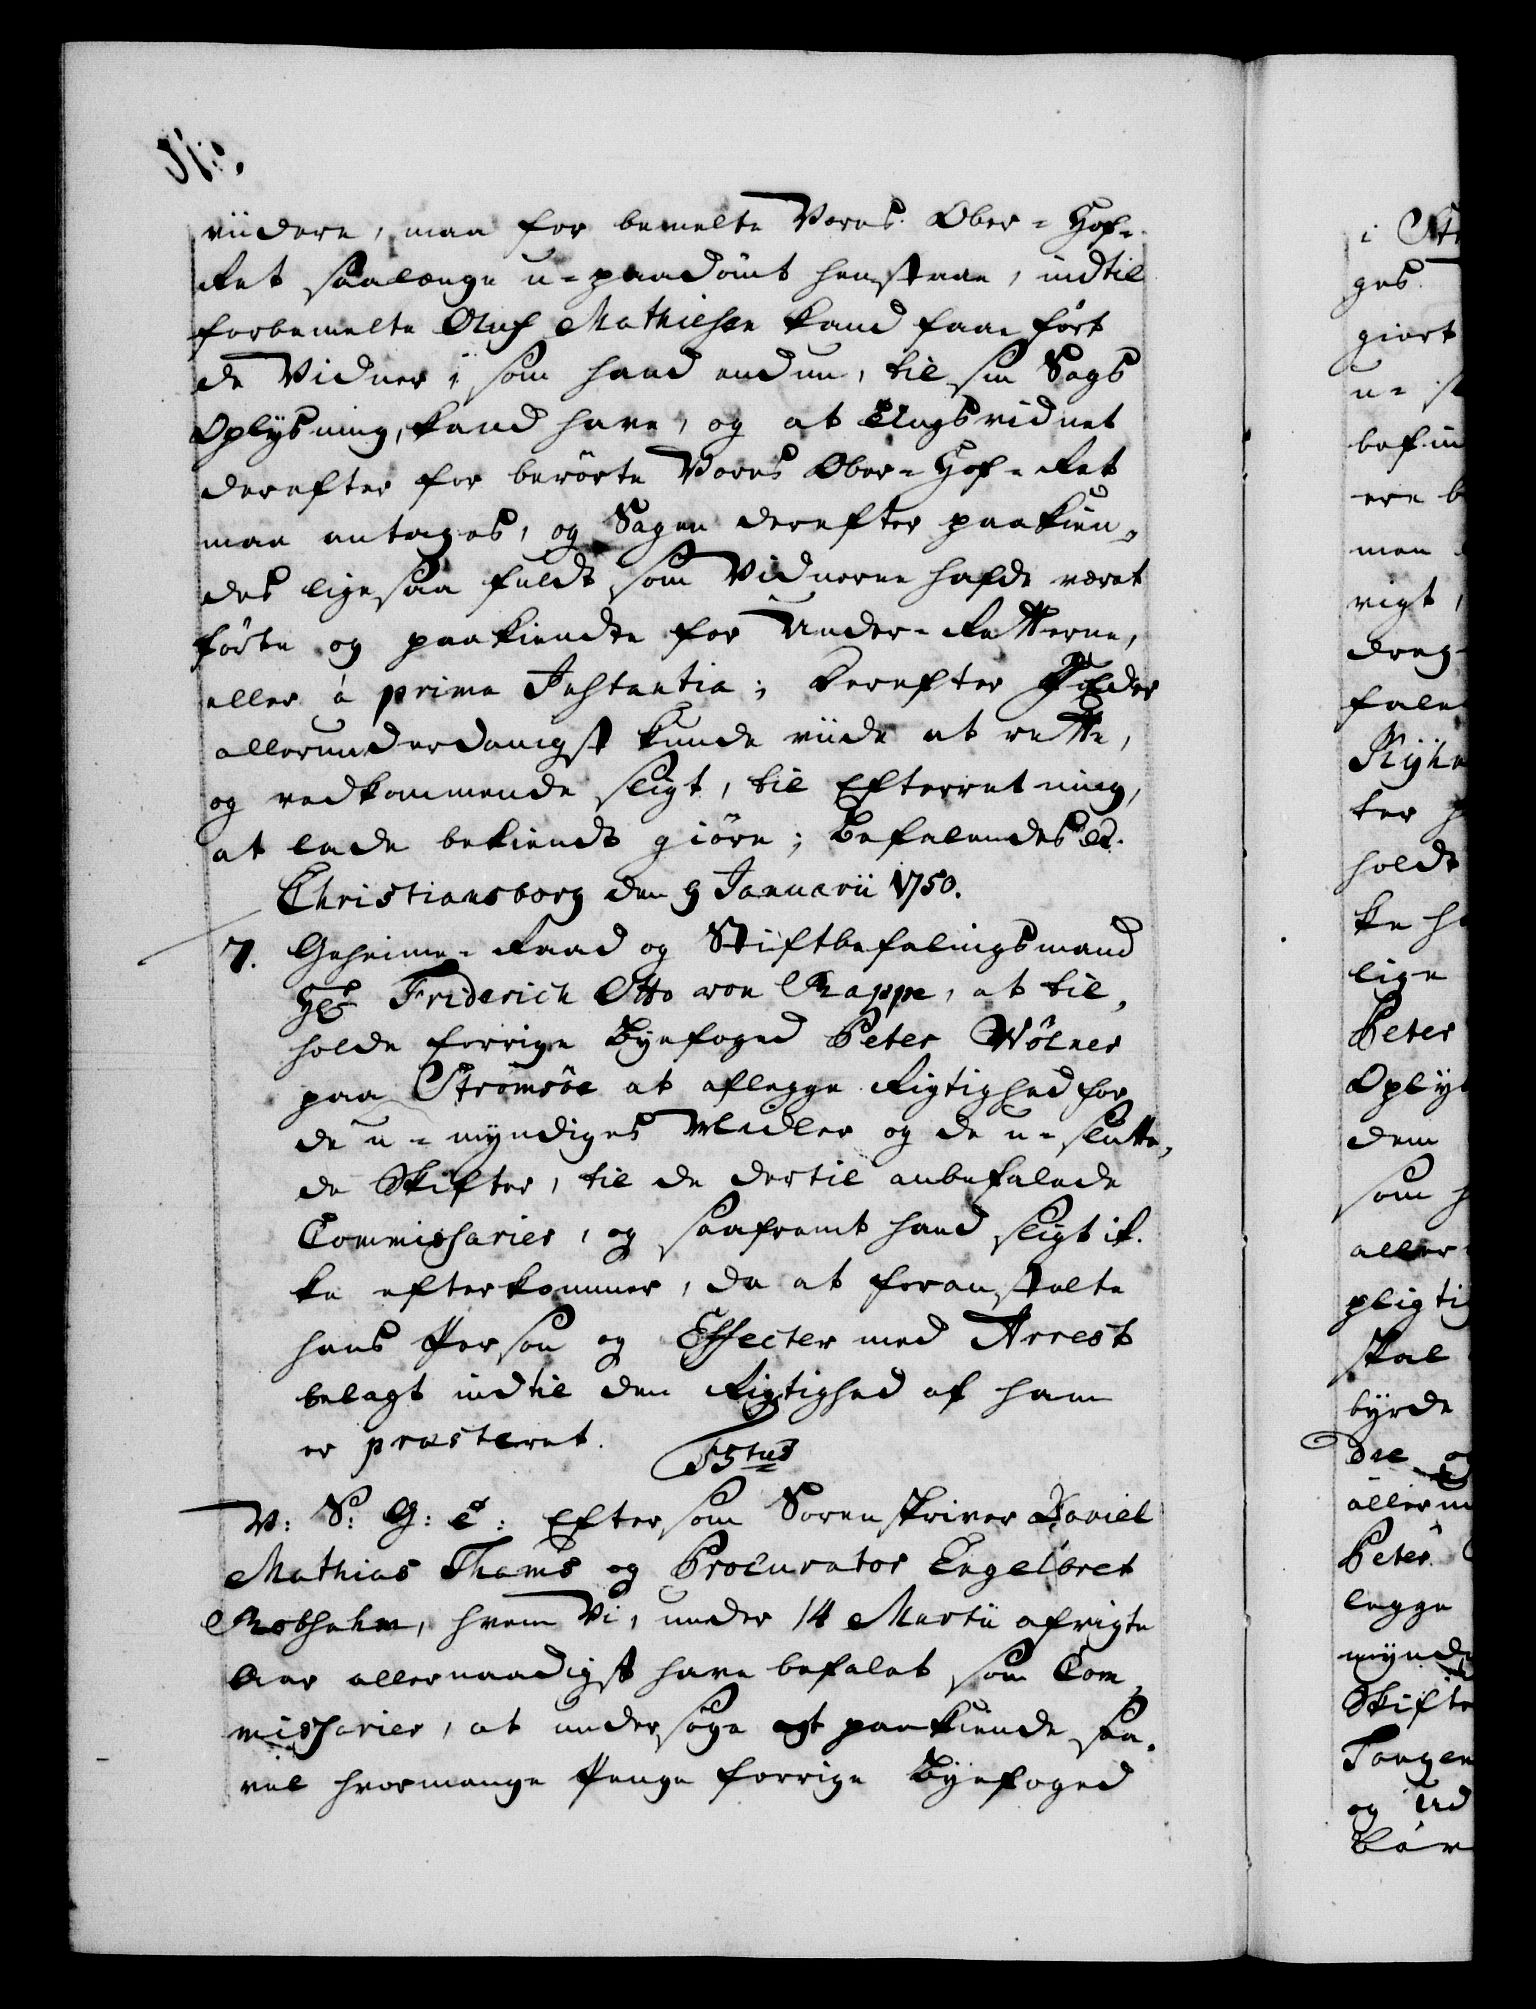 viidere, maa for bemelte Vores Ober-Hof-
Ret saalænge u-paadömt henstaae, indtil
forbemelte Oluf Mathiesen kand faae fört
de Vidner, som hand endnu, til sin Sags
Oplysning, kand have, og at Tingsvidnet
derefter for berörte Vores Ober-Hof-Ret
maa antages, og Sagen derefter paakien-
des ligesaa fuldt som Vidnerne hafde været
förte og paakiendte for Under-Retterne,
eller à prima Instantia; Derefter I
allerunderdanigst kunde viide at rette,
og vedkommende sligt, til Efterretning,
at lade bekiendt giöre; Befalendes etc.
Christiansborg den 9 Januarii 1750.
7. Geheime-Raad og Stiftbefalingsmand
Hr Friderich Otto von Rappe, at til-
holde forrige Byefoged Peter Wölner
paa Strömsöe at aflegge Rigtighed for
de u-myndiges Midler og de u-slutte-
de Skifter, til de dertil anbefalede
Commissarier, og saafremt hand sligt ik-
ke efterkommer, da at foranstalte
hans Person og Effecter med Arrest
belagt indtil den Rigtighed af ham
er præsteret.
F5tus
V: S: G: T: Eftersom Sorenskriver Daniel
Mathias Thams og Procurator Engelbret
Robsahm, hvem Vi, under 14 Martii afvigte
Aar allernaadigst have befalet som Com-
missarier, at undersöge og paakiende saa-
vel hvormange Penge forrige Byefoged
i St
ges
giort
u-
befin
ere b
men
rigt,
dreg-
fale
Ryhe
ter
holdt
ke h
lige
Peter
Oply
dem
som h
aller-
pligti
skal
byrde
dre og
allern
Peter
legge
mynd
Skifte
Tangen
og Ud
bör